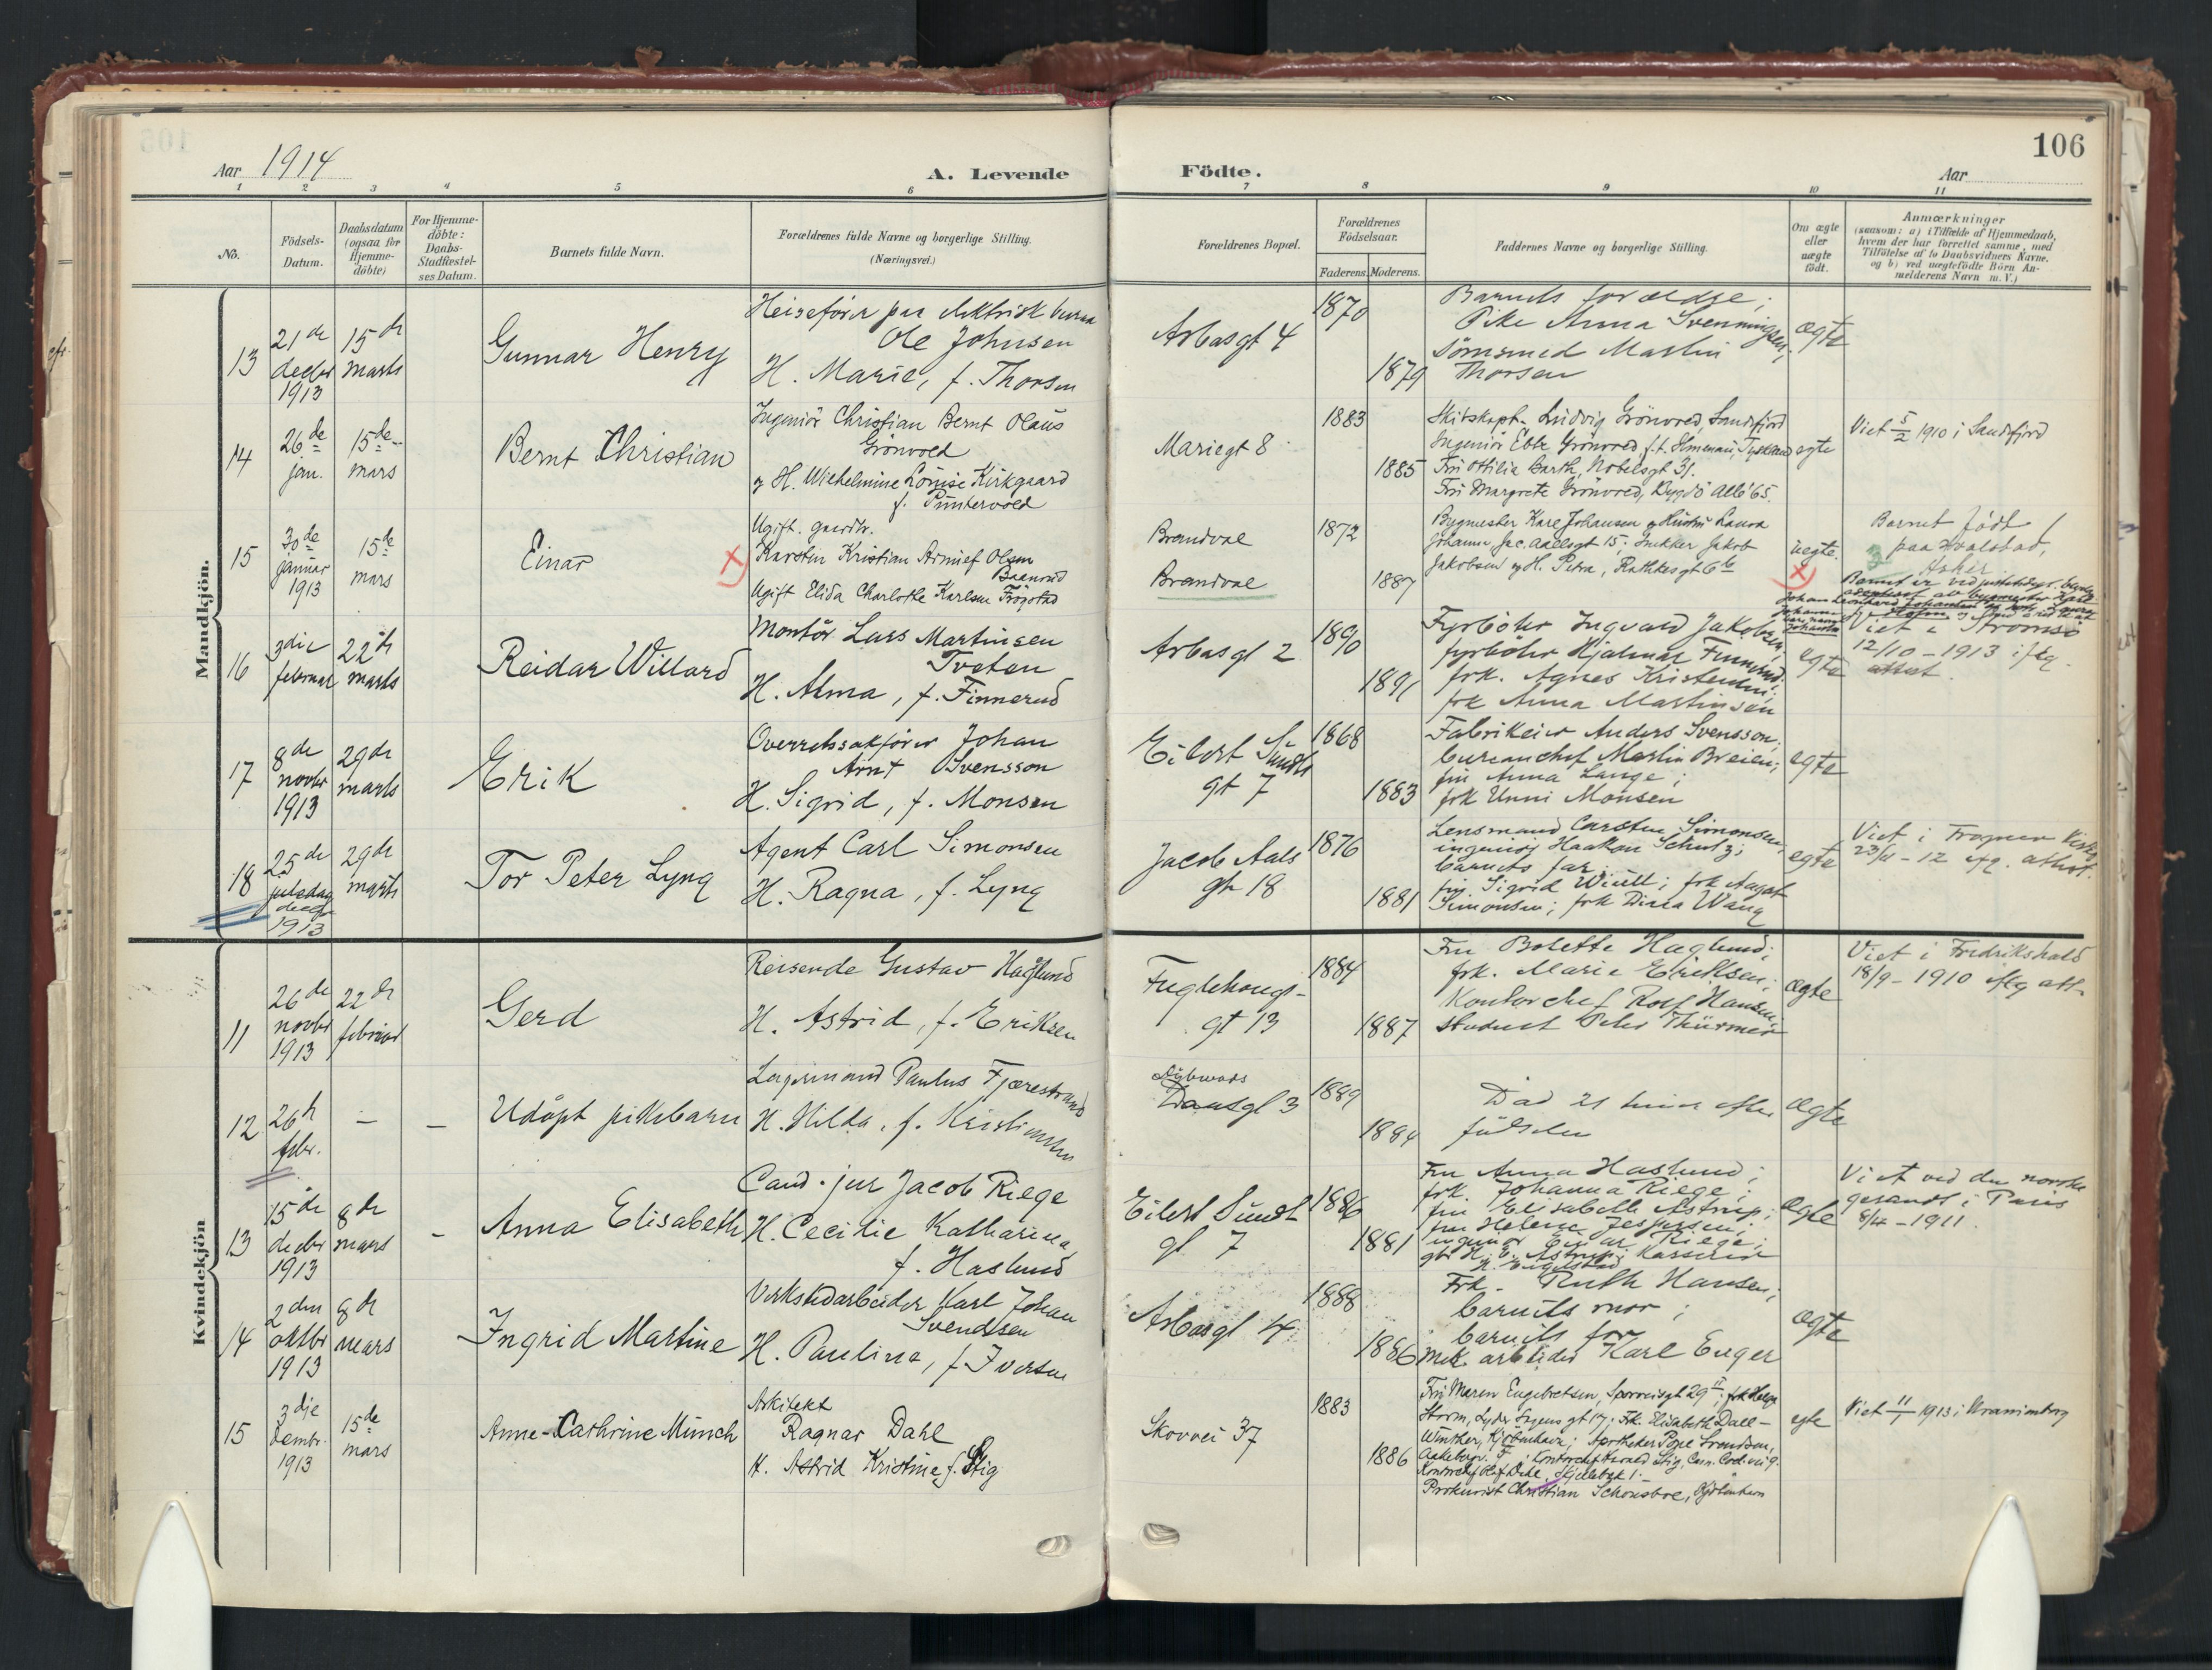 106
Aar 1914
A. Levende
Födte.
Aar
1 2 3 4 5 6 7 8 9 10 11
No.
Födsels-
Datum.
Daabsdatum
(ogsaa for
Hjemme-
döbte)
For Hjemme-
döbte:
Daabs-
Stadfæstel-
ses Datum.
Barnets fulde Navn.
Forældrenes fulde Navne og borgerlige Stilling.
(Næringsvei.)
Forældrenes Bopæl.
Forældrenes
Födselsaar.
Faderens. Moderens.
Faddernes Navne og borgerlige Stilling.
Om ægte
eller
uægte
födt.
Anmærkninger
(saasom: a) i Tilfælde af Hjemmedaab,
hvem der har forrettet samme, med
Tilföielse af to Daabsvidners Navne.
og b) ved uægtefödte Börn An-
melderens Navn m. V.)
Mandkjön.
13
21 de
decbr
1913
15 de
marts
Gunnar Henry
Heisefører paa elektrisk
Ole Johnsen
H. Marie, f. Thorsen
Arbosgt 4
1870
1879
Barnets forældre;
Pike Anna Svenningsen;
Sömsmed Martin
Thorsen
ægte
14
26 de
jan.
15 de
mars
Bernt Christian
Ingeniör Christian Bernt Olaus
Grönvold
og H. Wilhelmine Louise Kirkgaard
f. Püntervold
Mariegt 8
1883
1885
Skibskapt. Ludvig Grönvold, Sandefjord
Ingeniör Ebbe Grönvold, f.t. Ilmenau, Tyskland
Fru Ottilie Barth, Nobelsgt 31.
Fru Margrete Grönvold, Bygdö Allé 65.
egte
Viet 5/2 1910 i Sandefjord
15
30 de
januar
1913
15 de
mars
Einar
Ugift. gaardbr.
Karsten Kristian Arnulf Olsen
Baanrud
Ugift Elida Charlotte Karlsen Frogstad
Brandval
Brandval
1872
1887
Bygmester Karl Johansen og Hustru Laura
Johansen, Jac. Aallsgt 15; Snekker Jakob
Jakobsen og H. Petra, Rathkesgt 6 b
uegte.
Barnet født
paa Hvalstad,
Asker
16
3die
februar
22 de
marts
Reidar Willard
Montör Lars Martinsen
Tveten
H. Alma, f. Finnerud
Arbosgt 2
1890
1891
Fyrböter Ingvald Jakobsen;
fyrböter Hjalmar Finnerud;
frk. Agnes Kristensen;
frk Anna Martinsen
egte
Viet i Strömsö
12/10 - 1913 iflg.
attest.
17
8 de
novbr
1913
29 de
marts
Erik
Overretssakförer Johan
Arnt Svensson
H. Sigrid, f. Monsen
Eilert Sundts
gt 7
1868
1883
Fabrikeier Anders Svensson;
bureauchef Martin Breien;
fru Anna Lange;
frk Unni Monsen
egte
18
25 de
juledag
decbr
1913
29 de
marts
Tor Peter Lyng
Agent Carl Simonsen
H. Ragna, f. Lyng
Jacob Aals
gt 18
1876
1881
Lensmand Carsten Simonsen,
ingeniör Haakon Schultz;
barnets far;
fru Sigrid Wiull; frk Aagot
Simonsen; frk Dina Wang
egte
Viet i Frogner Kirke
23/11 - 12 iflg. attest.
Kvindekjön
11
26 de
novbr
1913
22 de
februar
Gerd
Reisende Gustav Haglund
H. Astrid, f. Eriksen
Fuglehaugs-
gt 13
1884
1887
Fru Bolette Haglund;
frk. Marie Eriksen;
Kontorchef Rolf Hansen;
student Peter Thürmer
ægte
Viet i Fredrikshald
18/9 - 1910 iflg att.
12
26 de
febr.
–
–
Udöpt pikebarn
Lagermand Paulus Fjærestrand
H. Hilda, f. Kristiansen
Dybwads
Daasgt 3
1889
1884
Död 21 timer efter
fødselen
ægte
13
15 de
decbr
1913
8 de
mars
-
Anna Elisabeth
Cand. jur Jacob Riege
H. Cecilie Katharina
f. Haslund
Eilert Sundt
gt 7
1886
1881
Fru Anna Haslund;
frk. Johanna Riege;
fru Elisabeth Astrup;
fru Helene Jespersen;
ingeniör Einar Riege;
gbr H. E. Astrup; kasserer
ægte
Viet ved den norske
gesandt i Paris
8/4 - 1911.
14
2 den
oktbr
1913
8 de
mars
Ingrid Martine
Verkstedarbeider Karl Johan
Svendsen
H. Pauline, f. Iversen
Arbosgt 4
1888
1886
Frk. Ruth Hansen;
barnets mor;
barnets far
mek. arbeider Karl Enger
ægte
15
3die
dembr.
1913
15 de
mars
Anne-Cathrine Münch
Arkitekt
Ragnar Dahl
H. Astrid Kristine, f. Stig
Skovvei 37
1883
1886
Fru Maren Engebretsen, Sporveisgt 29; frk Helga
Storm, Lyder Sagens gt 17; Frk. Elisabeth Dall-
Winther, Kjöbenhavn; Apotheker Svendsen,
Kontorchef Olaf Dahl, Skjellebæk 1.
Prokurist Christian Schousboe, Kjöbenhavn
egte
Viet 11/1 1913 i Uranienborg